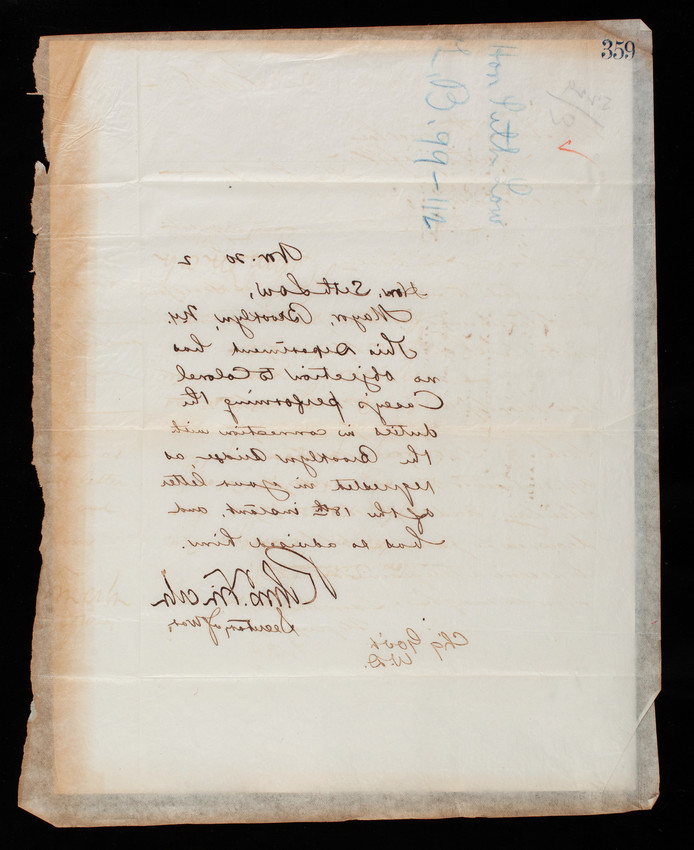 359
Hon Seth Low
L.B. 99-112
Nov. 20 2
Hon. Seth Low,
Mayor, Brooklyn, N.Y.
This Department has
no objection to Colonel
Casey's performing the
duties in connection with
the Brooklyn Bridge, as
requested in your letter
of the 18th instant, and
has so advised him.
Secretary of War.
Chg Gov't
W.D.